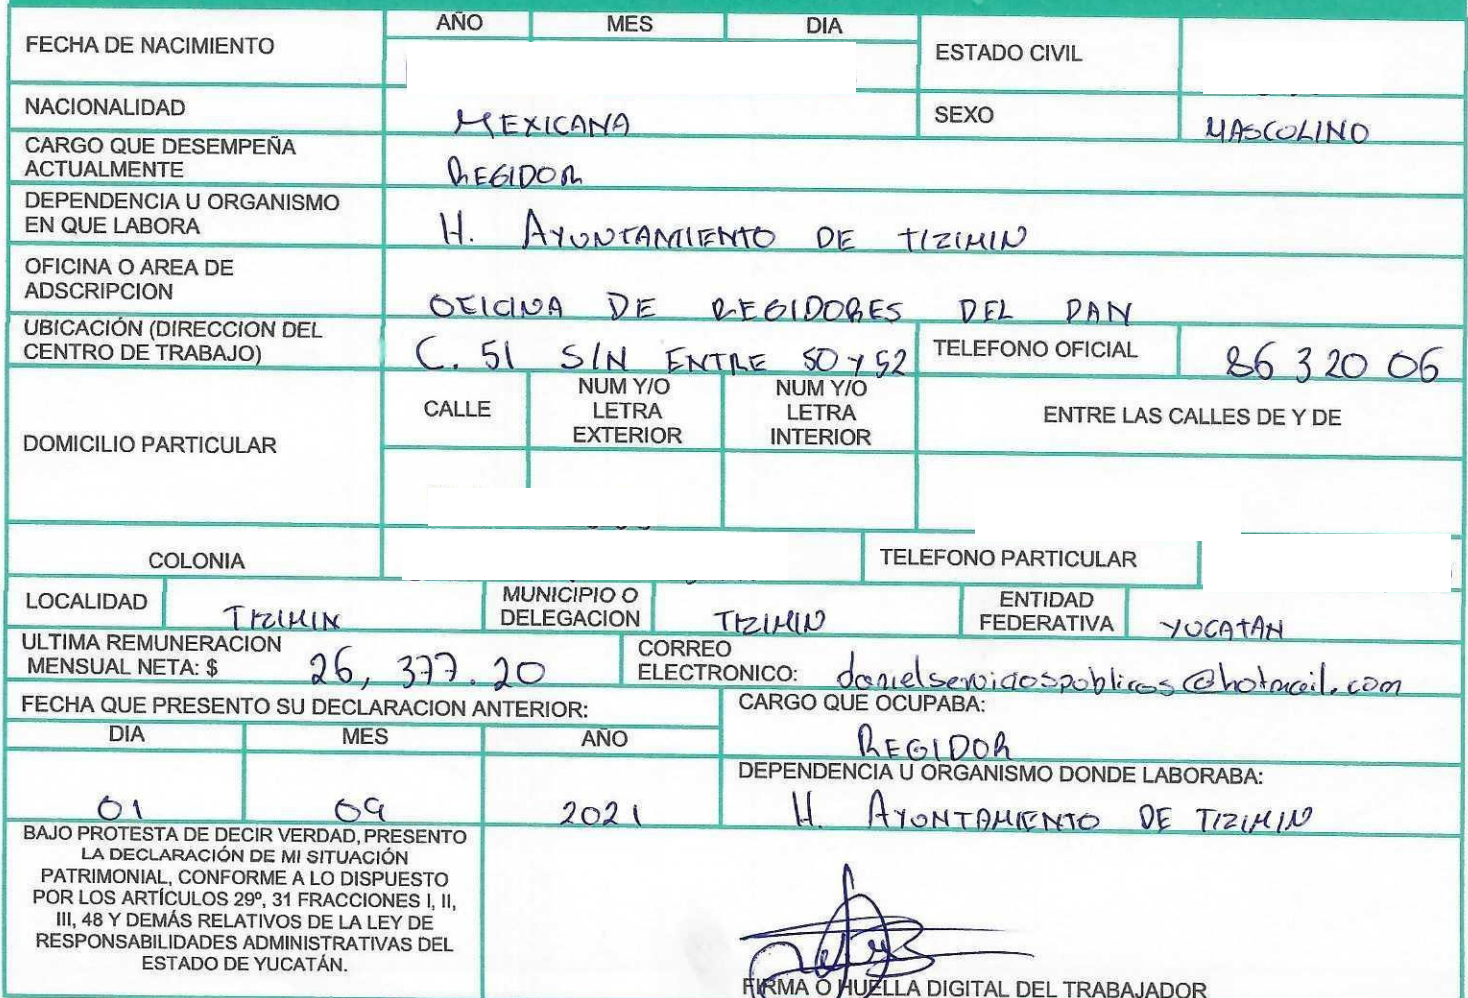 AÑO MES DIA
FECHA DE NACIMIENTO
ESTADO CIVIL
NACIONALIDAD MEXICANA SEXO MASCOLINO
CARGO QUE DESEMPEÑA
ACTUALMENTE REGIDOR
DEPENDENCIA U ORGANISMO
EN QUE LABORA H. AYUNTAMIENTO DE TIZIMIN
OFICINA O AREA DE
ADSCRIPCION OFICINA DE REGIDORES DEL PAN
UBICACIÓN (DIRECCION DEL
CENTRO DE TRABAJO) C. 51 S/N ENTRE 50 Y 52 TELEFONO OFICIAL 86 3 20 06
DOMICILIO PARTICULAR
CALLE
NUM Y/O
LETRA
EXTERIOR
NUM Y/O
LETRA
INTERIOR
ENTRE LAS CALLES DE Y DE
COLONIA TELEFONO PARTICULAR
LOCALIDAD TIZIMIN
MUNICIPIO O
DELEGACION TIZIMIN
ENTIDAD
FEDERATIVA YUCATAN
ULTIMA REMUNERACION
MENSUAL NETA: $ 26,377.20
CORREO
ELECTRONICO: danielserviciospoblicos@hotmail.com
FECHA QUE PRESENTO SU DECLARACION ANTERIOR:
DIA MES AÑO
01 09 2021
CARGO QUE OCUPABA:
REGIDOR
DEPENDENCIA U ORGANISMO DONDE LABORABA:
H. AYONTAMIENTO DE TIZIMIN
BAJO PROTESTA DE DECIR VERDAD, PRESENTO
LA DECLARACIÓN DE MI SITUACIÓN
PATRIMONIAL, CONFORME A LO DISPUESTO
POR LOS ARTÍCULOS 29º, 31 FRACCIONES I, II,
III, 48 Y DEMÁS RELATIVOS DE LA LEY DE
RESPONSABILIDADES ADMINISTRATIVAS DEL
ESTADO DE YUCATÁN.
FIRMA O HUELLA DIGITAL DEL TRABAJADOR